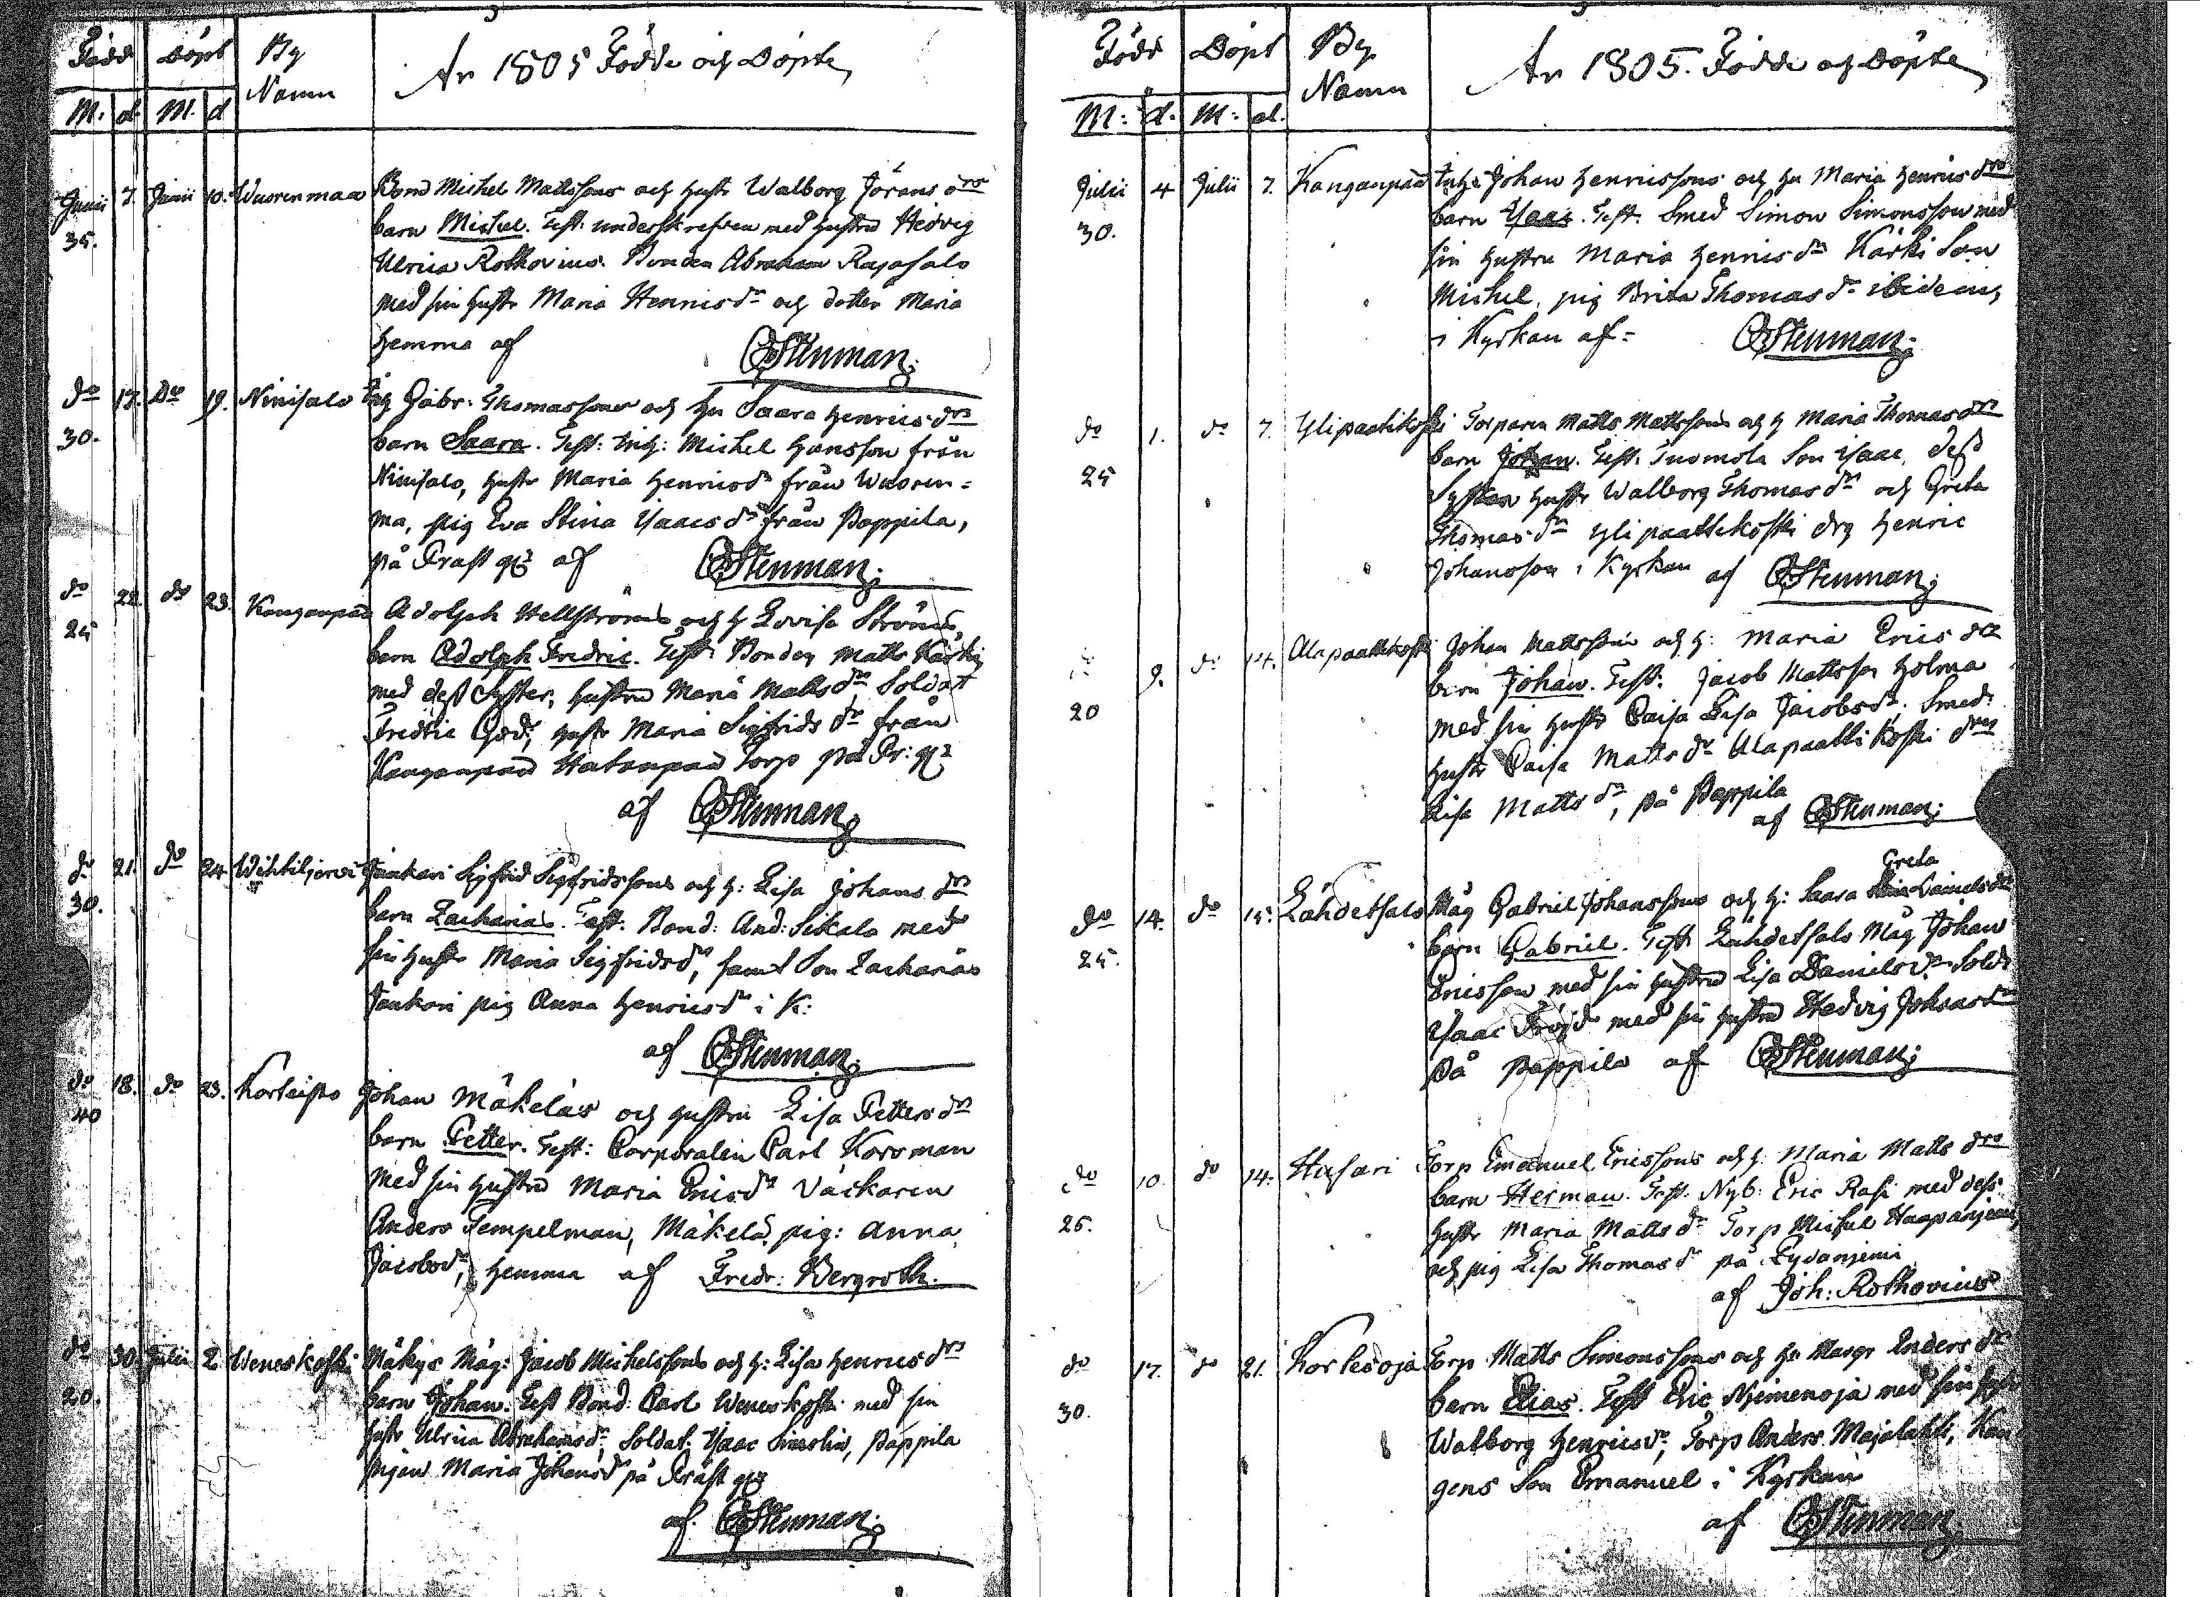 Född Döpt By Namn År 1805 Födde och Döpte
M: d. M. d
Junii 7. Junii 10. Wuorenmaa Bond Michel Mattssons och hustr Walborg Jörans drs
35. barn Michel. Test: underskrefven med hustru Hedvig
Ulrica Rothovius. Bonden Abraham Rajasalo
med sin hustr Maria Henricsdr och dotter Maria
hemma af CStenman.
do 17. Do 19. Niinisalo Inh Gabr: Thomassons och hu Saara Henricsdrs
30. barn Saara. Test: Inh: Michel Hansson från
Niinisalo, hustr Maria Henricsdr från Wuoren=
ma, pig Eva Stina Isaacsdr från Pappila,
på Prast af CStenman.
do 22. do 23. Kanganpää Adolph Hellströms och h Lovisa Ströms
25 barn Adolph Fredric. Test: Bonden Matts Kärki
med dess Syster, hustru Maria Mattsdr, Soldat
Fredric God, hustr Maria Sigfridsdr från
Kanganpää Torp på Pr:
af CStenman
do 21. do 24. Jankari Sigfrid Sigfridssons och h: Lisa Johans drs
30. barn Zacharias. Test: Bond: And: Sikala med
sin hustr Maria Sigfridsdr, samt Son Zacharias
Jankari pig Anna Henricsdr i K:
af CStenman.
do 18. do 23. Korteisto Johan Mäkeläs och hustru Lisa Petters drs
40 barn Petter. Test: Corporalen Carl Korsman
med sin hustru Maria Ericsdr Väckaren
Anders Tempelman, Mäkelä pig: Anna
Jacobsdr, hemma af Fredr: Bergroth.
do 30. Julii 2 Weneskoski Mäkys Måg: Jacob Michelssons och h: Lisa Henricsdrs
20. barn Johan. Test Bond: Carl Weneskoski med sin
hustr Ulrica Abrahamsdr, Soldat: Isaac, Pappila
pigan Maria Johansdr på Präst
af. CStenman.
Född Döpt By Namn År 1805. Födde och Döpte
M: d. M: d.
Julii 4 Julii 7. Kanganpää Inh: Johan Henricssons och hu Maria Henricsdrs
30. barn Isaac. Test. Smed Simon Simonsson med
sin hustru Maria Henricsdr Kärki Son
Michel, pig Brita Thomasdr ibidem,
i Kyrkan af= CStenman.
do 1. do 7. Ylipaattikoski Torparen Matts Mattssons och h Maria Thomasdrs
25 barn Johan. Test: Tuomola Son Isaac, dess
Syster hustr Walborg Thomasdr och Greta
Thomasdr Ylipaattikoski drg Henric
Johansson i Kyrkan af CStenman.
9. do 14. Alapaattikoski Johan Mattssons och h: Maria Erics drs
20 barn Johan. Test: Jacob Mattsson Holma
med sin hustr Caisa Lisa Jacobsdr. Smed:
hustr Caisa Mattsdr Alapaattikoski
Lisa Mattsdr, på Pappila
af CStenman.
Greta
do 14. do 15. Lähdetsalo Måg Gabriel Johanssons och h: Saara Danielsdrs
25. barn Gabriel. Test: Lähdetsalo Måg Johan
Ericsson med sin hustru Lisa Danielsdr Sold:
Isaac Fröjd med sin hustru Hedvig Johansdr
på Pappila af CStenman.
do 10. do 14. Husari Torp Emanuel Ericssons och h: Maria Matts drs
25. barn Herman. Test. Nyb: Eric Rasi med dess
hustr Maria Mattsdr Torp Michel Haapaniemi,
och pig Lisa Thomasdr på Lydanjemi
af Joh: Rothovius
do 17. do 21. Kortesoja Torp Matts Simonssons och hu Margr Andersdr
30. barn Elias. Test Eric Njemenoja med sin hustr
Walborg Henricsdr, Torp Anders Majalahti, Kan
gens Son Emanuel i Kyrkan
af CStenman